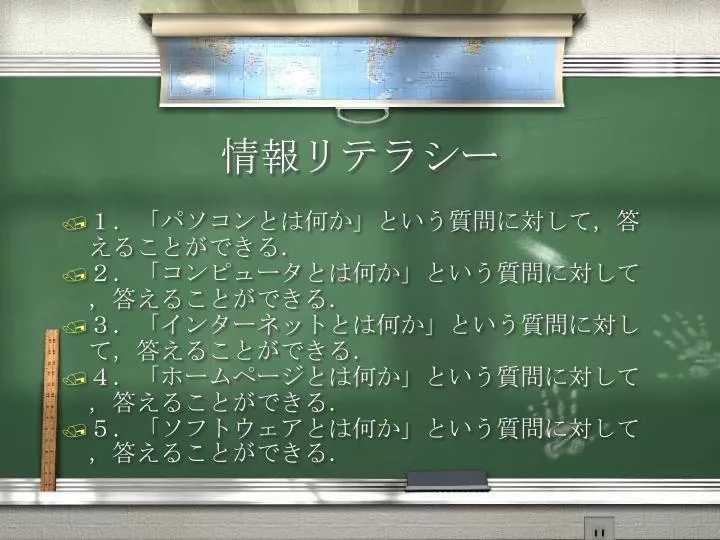 情報リテラシー
１．「パソコンとは何か」という質問に対して，答
えることができる．
２．「コンピュータとは何か」という質問に対して
，答えることができる．
３．「インターネットとは何か」という質問に対し
て，答えることができる．
４．「ホームページとは何か」という質問に対して
，答えることができる．
５．「ソフトウェアとは何か」という質問に対して
，答えることができる．